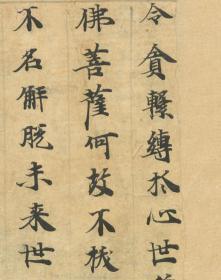 令貪繫縛於心世
佛菩薩何故不拔
不名解脱未来世